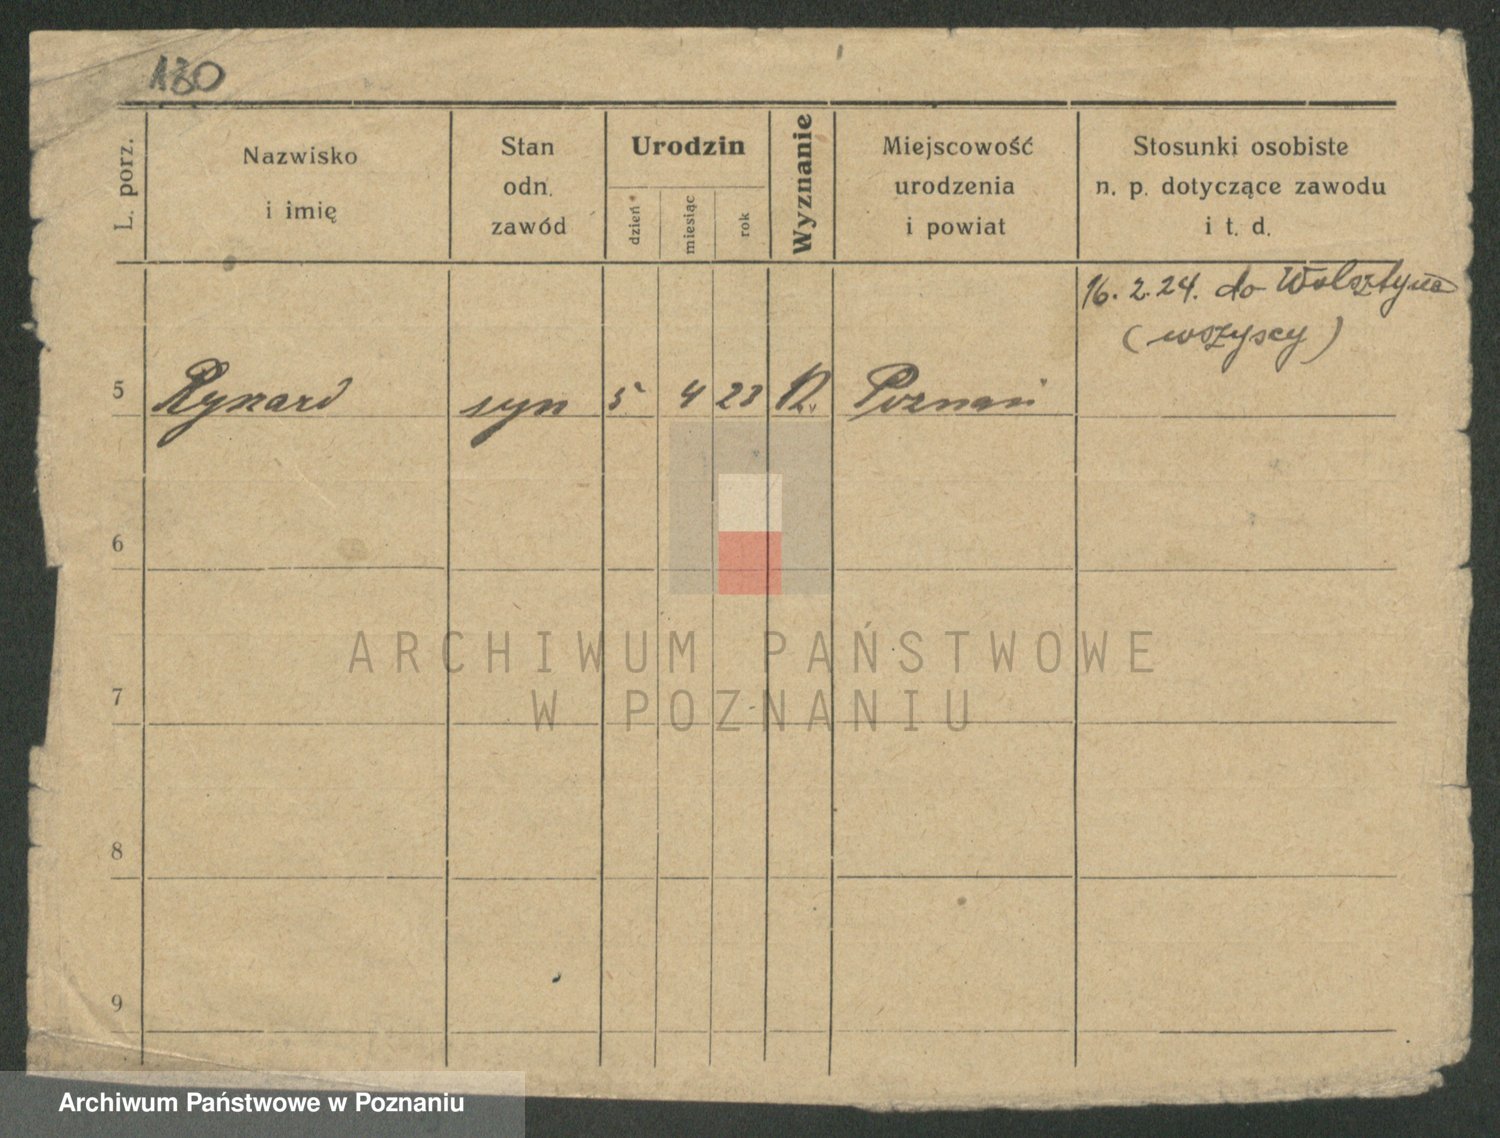 130
L. porz.
Nazwisko
i imię
Stan
odn.
zawód
Urodzin
dzień
miesiąc
rok
Wyznanie
Miejscowość
urodzenia
i powiat
Stosunki osobiste
n. p. dotyczące zawodu
i t. d.
16. 2. 24. do Wolsztyna
(wszyscy)
5 Rynard syn 5 4 23 Poznań
6
7
8
9
ARCHIWUM PAŃSTWOWE
W POZNANIU
Archiwum Państwowe w Poznaniu